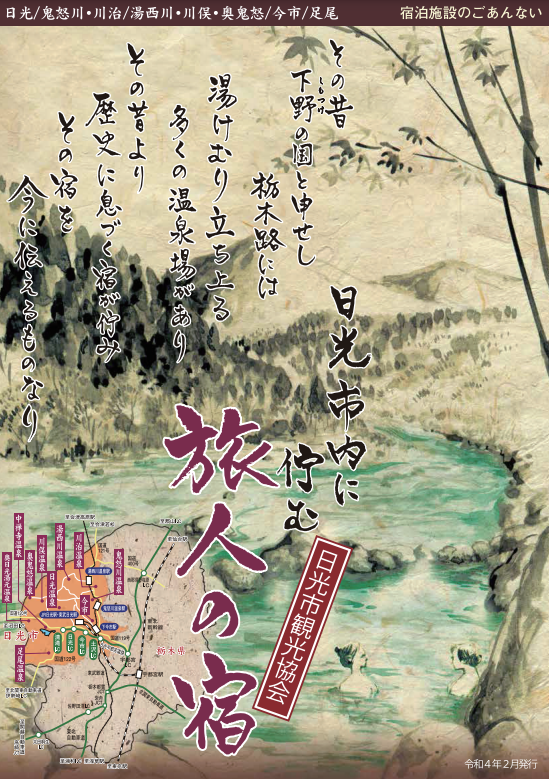 日光/鬼怒川・川治/湯西川・川俣・奥鬼怒/今市/足尾
宿泊施設のごあんない
その昔
下野の国と申せし
しもつけ
栃木路には
湯けむり立ち上る
多くの温泉場があり
その昔より
歴史に息づく宿が佇み
その宿を
今に伝えるものなり
日光市内に
佇む
旅人の宿
日光市観光協会
中禅寺温泉
奥日光湯元温泉
川俣温泉
奥鬼怒温泉
湯西川温泉
日光温泉
川治温泉
今市
鬼怒川温泉
足尾温泉
日光市
栃木県
国道119号
国道122号
宇都宮駅
令和4年2月発行